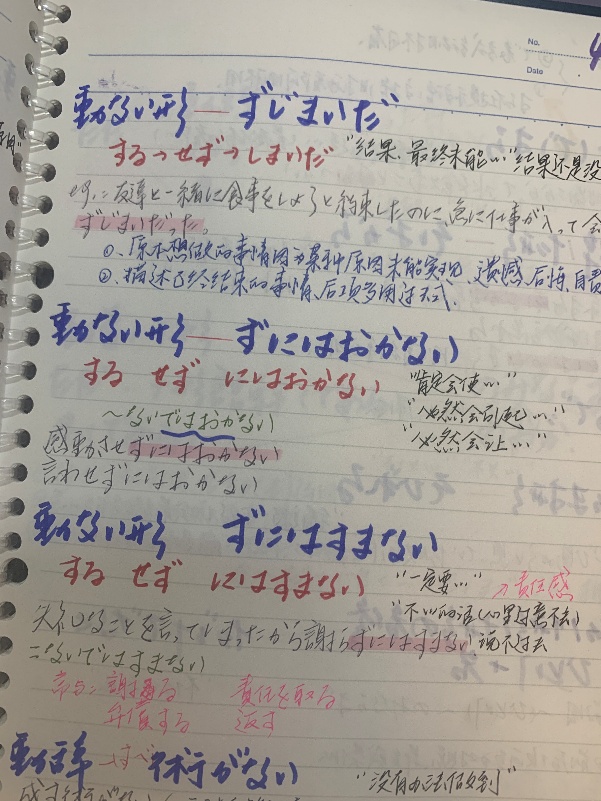 No.
Date
動ない形 — ずじまいだ
する→せず→しまいだ "结果、最终未能…" 结果还是没
eg.:友達と一緒に食事をしようと約束したのに、急に仕事が入って会
ずじまいだった。
①、原本想做的事情因为某种原因未能实现、遗憾、后悔、自责
②、描述已经结束的事情、后项多用过去式.
動ない形 — ずにはおかない
する せず にはおかない "肯定会使…"
~ないではおかない "必然会引起…"
感動させずにはおかない "必然会让…"
言わせずにはおかない
動ない形 ずにはすまない
する せず にはすまない "一定要…" →责任感
"不…的话(心里过意不去)
失礼なことを言ってしまったから謝らずにはすまない 说不过去
=ないではすまない
常与: 謝る 責任を取る
弁償する 返す
動辞 →すべ 術がない "没有办法做到"